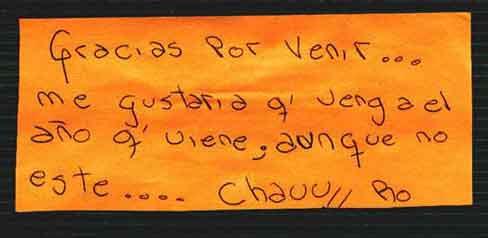 Gracias Por Venir...
me gustaria q' venga el
año q' viene, aunque no
este.... Chauu// Ro